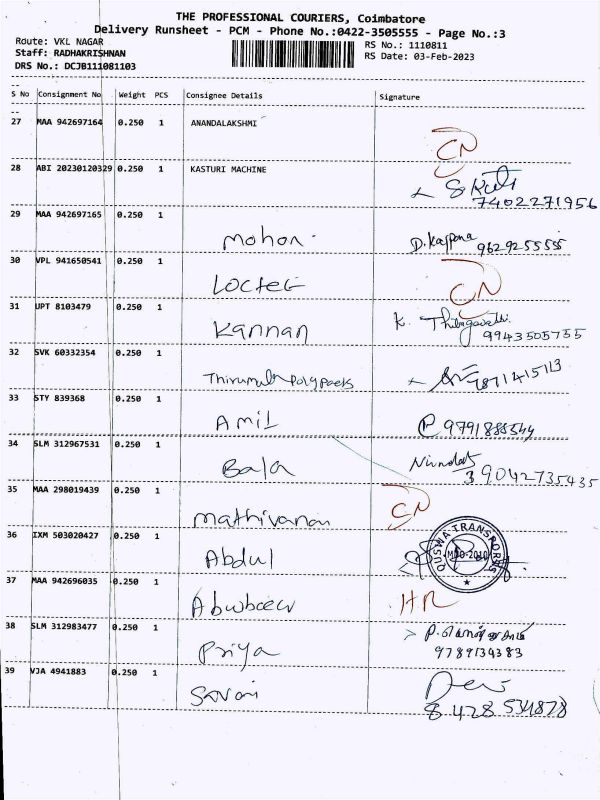 THE PROFESSIONAL COURIERS, Coimbatore
Delivery Runsheet - PCM - Phone No.:0422-3505555 - Page No.:3
Route: VKL NAGAR
RS No.: 1110811
Staff: RADHAKRISHNAN
RS Date: 03-Feb-2023
DRS No.: DCJB111081103
S No Consignment No Weight PCS Consignee Details Signature
27 MAA 942697164 0.250 1 ANANDALAKSHMI
CN
28 ABI 20230120329 0.250 1 KASTURI MACHINE
7402271956
29 MAA 942697165 0.250 1
Mohan D. Kalpana 9629255555
30 VPL 941650541 0.250 1
LOCTEC CN
31 UPT 8103479 0.250 1
Kannan K.
9943505755
32 SVK 60332354 0.250 1
Thirumul Polypacks 9871415113
33 STY 839368 0.250 1
Amil 9791888544
34 SLM 312967531 0.250 1
Bala
39042735435
35 MAA 298019439 0.250 1
Mathivanan CN
36 IXM 503020427 0.250 1
Abdul QUSWA TRANSPORTS
37 MAA 942696035 0.250 1
HR
38 SLM 312983477 0.250 1
Priya
9789134383
39 VJA 4941883 0.250 1
8428534828